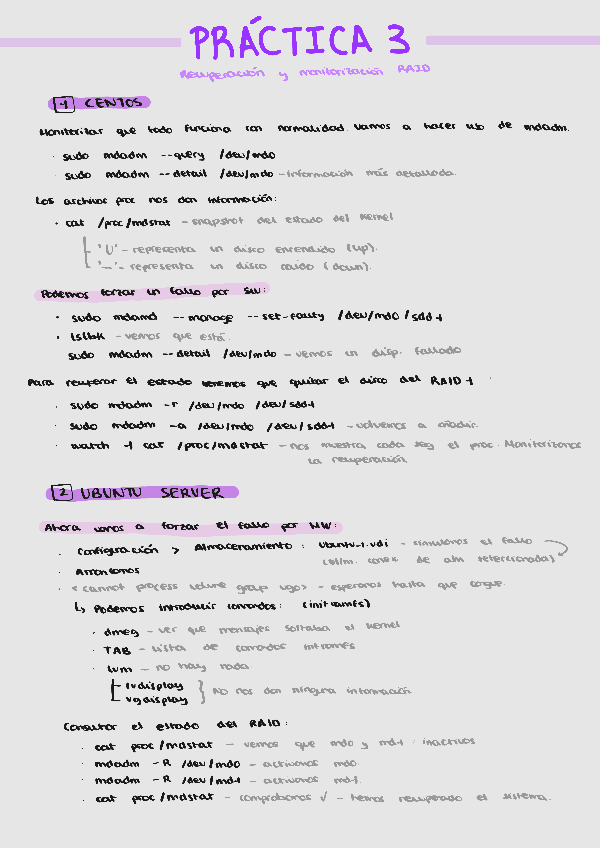 PRÁCTICA 3
Recuperación y monitorización RAID
1 CENTOS
Monitorizar que todo funciona con normalidad. Vamos a hacer uso de mdadm.
· sudo mdadm --query /dev/md0
· sudo mdadm --detail /dev/md0 - información más detallada.
Los archivos proc nos dan información:
· cat /proc/mdstat - snapshot del estado del kernel
'U' - representa un disco encendido (up).
'_' - representa un disco caído (down).
Podemos forzar un fallo por SW:
· sudo mdamd --manage --set-faulty /dev/md0 /sdd1
· lsblk - vemos que está.
sudo mdadm --detail /dev/md0 - vemos un disp. fallado
Para recuperar el estado tenemos que quitar el disco del RAID 1
· sudo mdadm -r /dev/md0 /dev/sdd1
· sudo mdadm -a /dev/md0 /dev/sdd1 - volvemos a añadir.
· watch -1 cat /proc/mdstat - nos muestra cada seg el proc. Monitorizamos
la recuperación.
2 UBUNTU SERVER
Ahora vamos a forzar el fallo por HW:
· Configuración > Almacenamiento : Ubuntu-1.vdi - simulamos el fallo
· Arrancamos (elim. conex de alm seleccionada)
· <cannot process volume group vg0> - esperamos hasta que cargue.
↳ Podemos introducir comandos: (initramfs)
· dmeg - ver que mensajes soltaba el kernel
· TAB - Lista de comandos intramfs
· lvm - no hay nada
lvdisplay
vgdisplay } No nos dan ninguna información
Consultar el estado del RAID:
· cat proc/mdstat - vemos que md0 y md1 : inactivos
· mdadm -R /dev/md0 - activamos md0.
· mdadm -R /dev/md1 - activamos md1.
· cat proc/mdstat - comprobamos √ - hemos recuperado el sistema.